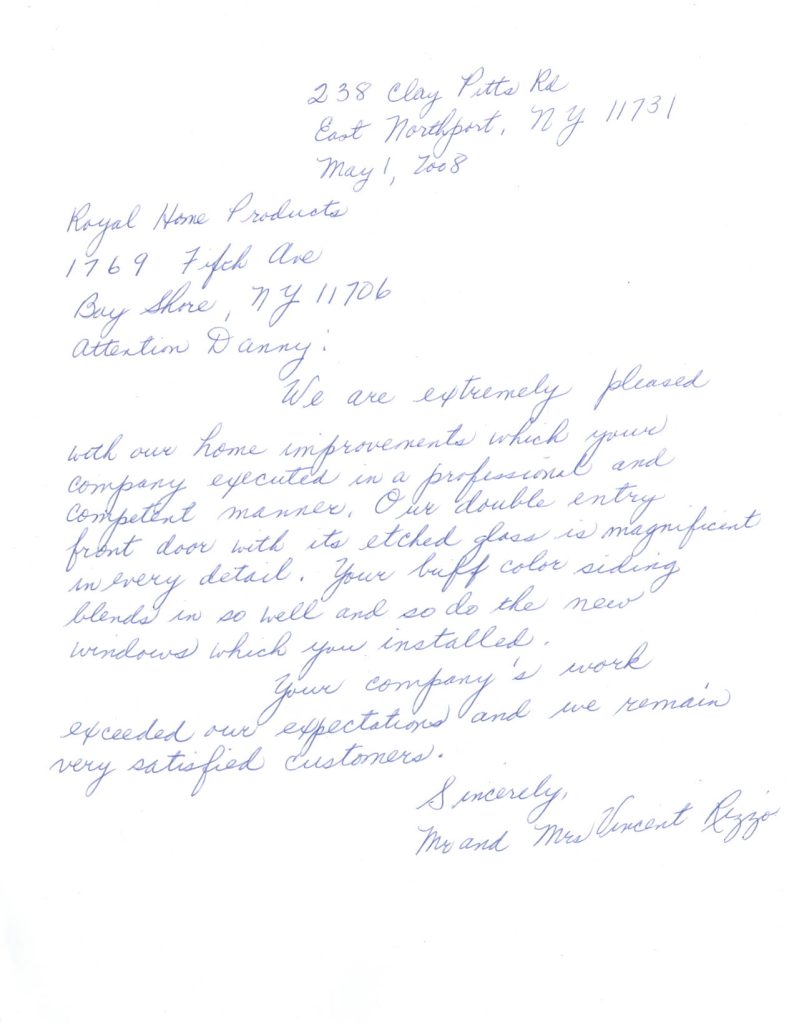 238 Clay Pitts Rd
East Northport, NY 11731
May 1, 2008
Royal Home Products
1769 Fifth Ave
Bay Shore, NY 11706
Attention Danny:
We are extremely pleased
with our home improvements which your
company executed in a professional and
competent manner. Our double entry
front door with its etched glass is magnificent
in every detail. Your buff color siding
blends in so well and so do the new
windows which you installed.
Your company's work
exceeded our expectations and we remain
very satisfied customers.
Sincerely,
Mr and Mrs Vincent Rizzo